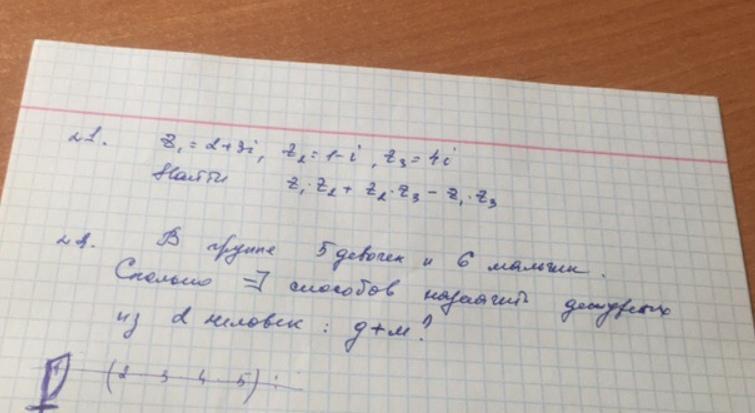 №1. z₁ = 2+3i, z₂ = 1-i, z₃ = 4i
Найти z₁·z₂ + z₂·z₃ - z₁·z₃
№2. В группе 5 девочек и 6 мальчик.
Сколько ∃ способов назначить дежурных
из 2 человек: д+м?
(2 3 4 5)